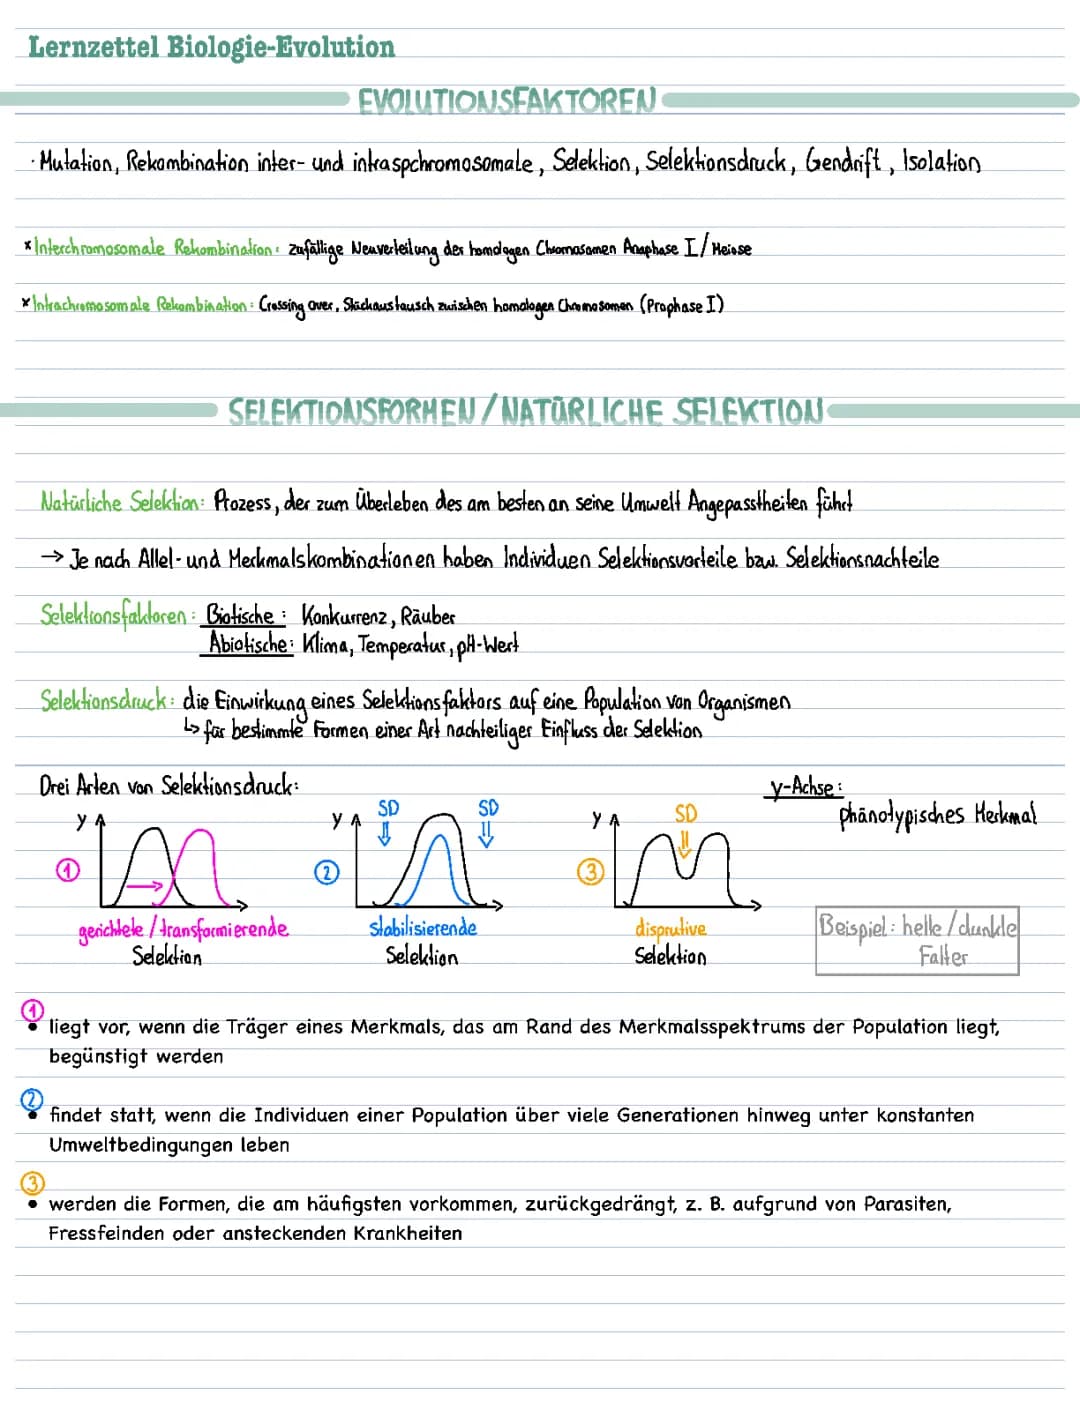 Lernzettel Biologie-Evolution
EVOLUTIONSFAKTOREN
· Mutation, Rekombination inter- und intraspchromosomale, Selektion, Selektionsdruck, Gendrift, Isolation
x Interchromosomale Rekombination: zufällige Neuverteilung der homologen Chromosomen Anaphase I / Meiose
x Intrachromosomale Rekombination: Crossing over, Stückaustausch zwischen homologen Chromosomen (Prophase I)
SELEKTIONSFORMEN / NATÜRLICHE SELEKTION
Natürliche Selektion: Prozess, der zum Überleben des am besten an seine Umwelt Angepasstheiten führt
→ Je nach Allel- und Merkmalskombinationen haben Individuen Selektionsvorteile bzw. Selektionsnachteile
Selektionsfaktoren: Biotische: Konkurrenz, Räuber
Abiotische: Klima, Temperatur, pH-Wert
Selektionsdruck: die Einwirkung eines Selektionsfaktors auf eine Population von Organismen
↳ für bestimmte Formen einer Art nachteiliger Einfluss der Selektion
Drei Arten von Selektionsdruck:
y-Achse:
phänotypisches Merkmal
y
①
gerichtete / transformierende
Selektion
y
SD
SD
②
stabilisierende
Selektion
y
SD
③
disprutive
Selektion
Beispiel: helle / dunkle
Falter
①
• liegt vor, wenn die Träger eines Merkmals, das am Rand des Merkmalsspektrums der Population liegt,
begünstigt werden
②
• findet statt, wenn die Individuen einer Population über viele Generationen hinweg unter konstanten
Umweltbedingungen leben
③
• werden die Formen, die am häufigsten vorkommen, zurückgedrängt, z. B. aufgrund von Parasiten,
Fressfeinden oder ansteckenden Krankheiten